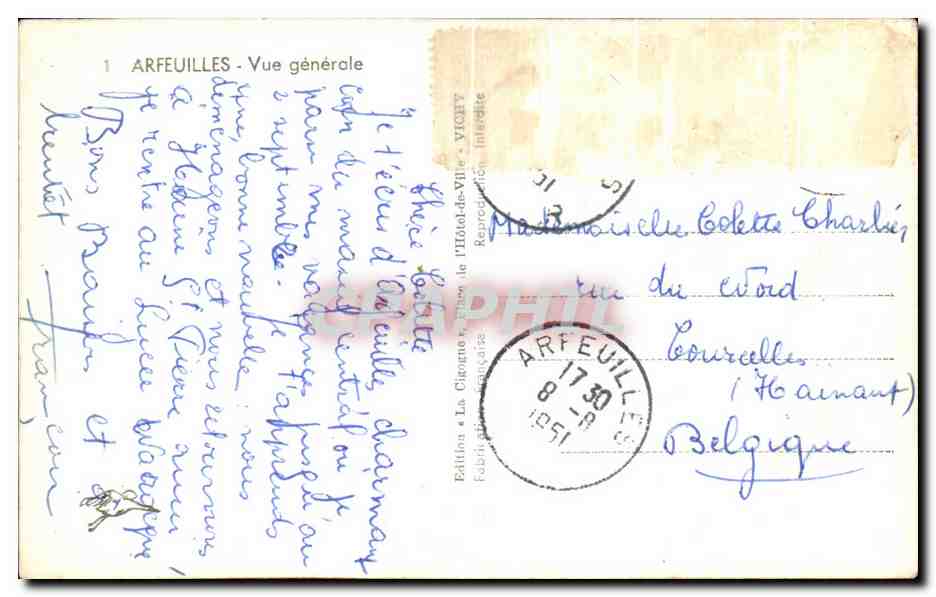 1 ARFEUILLES - Vue générale
Chère Colette
Je t'écris d'Arfeuilles, charmant
coin du massif central où je
passe mes vacances jusqu'au
2 septembre. Je t'apprends
une bonne nouvelle : nous
déménageons et nous retournons
à St Pierre aussi
je rentre au Lycée
Bons Baisers et
bientôt
Edition « La Cigogne », Place de l'Hôtel-de-Ville - VICHY
Fabrication Française Reproduction Interdite
Mademoiselle Colette Charlier
rue du Nord
Courcelles
(Hainaut)
Belgique
ARFEUILLES
17 30
8 -8
1951
CPAPHIL